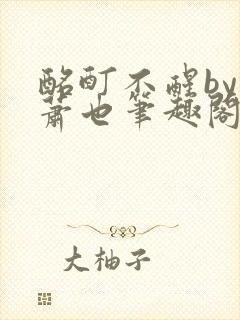 酩酊不醒by
萧也笔趣阁
大柚子